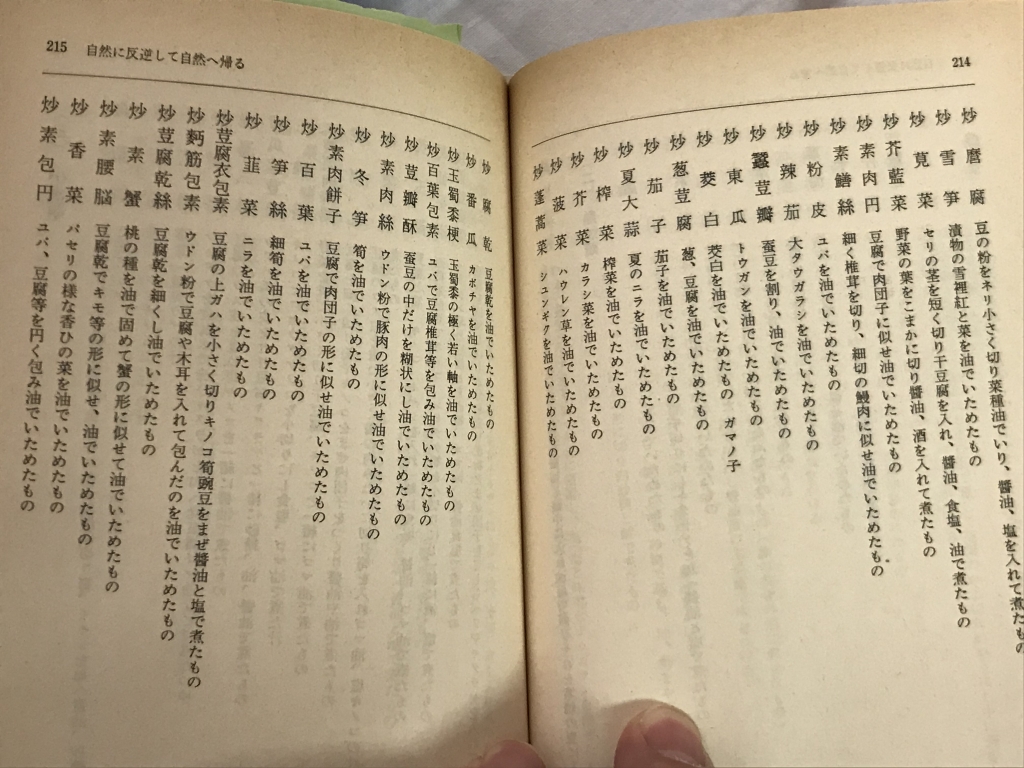 214
炒磨腐 豆の粉をネリ小さく切り菜種油でいり、醬油、塩を入れて煮たもの
炒雪笋 漬物の雪裡紅と菜を油でいためたもの
炒筧菜 セリの茎を短く切り干豆腐を入れ、醬油、食塩、油で煮たもの
炒芥藍菜 野菜の葉をこまかに切り醬油、酒を入れて煮たもの
炒素肉円 豆腐で肉団子に似せ油でいためたもの
炒素鱔絲 細く椎茸を切り、細切の鰻肉に似せ油でいためたもの
炒粉皮 ユバを油でいためたもの
炒辣茄 大タウガラシを油でいためたもの
炒蠶荳瓣 蚕豆を割り、油でいためたもの
炒東瓜 トウガンを油でいためたもの
炒茭白 茭白を油でいためたもの ガマノ子
炒葱荳腐 葱、豆腐を油でいためたもの
炒茄子 茄子を油でいためたもの
炒夏大蒜 夏のニラを油でいためたもの
炒榨菜 榨菜を油でいためたもの
炒芥菜 カラシ菜を油でいためたもの
炒菠菜 ハウレン草を油でいためたもの
炒蓬蒿菜 シュンギクを油でいためたもの
215 自然に反逆して自然へ帰る
炒腐乾 豆腐乾を油でいためたもの
炒番瓜 カボチヤを油でいためたもの
炒玉蜀黍梗 玉蜀黍の極く若い軸を油でいためたもの
炒百葉包素 ユバで豆腐椎茸等を包み油でいためたもの
炒荳瓣酥 蚕豆の中だけを糊状にし油でいためたもの
炒素肉絲 ウドン粉で豚肉の形に似せ油でいためたもの
炒冬笋 筍を油でいためたもの
炒素肉餅子 豆腐で肉団子の形に似せ油でいためたもの
炒百葉 ユバを油でいためたもの
炒笋絲 細筍を油でいためたもの
炒韮菜 ニラを油でいためたもの
炒荳腐衣包素 豆腐の上ガハを小さく切りキノコ筍豌豆をまぜ醬油と塩で煮たもの
炒麪筋包素 ウドン粉で豆腐や木耳を入れて包んだのを油でいためたもの
炒荳腐乾絲 豆腐乾を細くし油でいためたもの
炒素蟹 桃の種を油で固めて蟹の形に似せて油でいためたもの
炒素腰脳 豆腐乾でキモ等の形に似せ、油でいためたもの
炒香菜 パセリの様な香ひの菜を油でいためたもの
炒素包円 ユバ、豆腐等を円く包み油でいためたもの